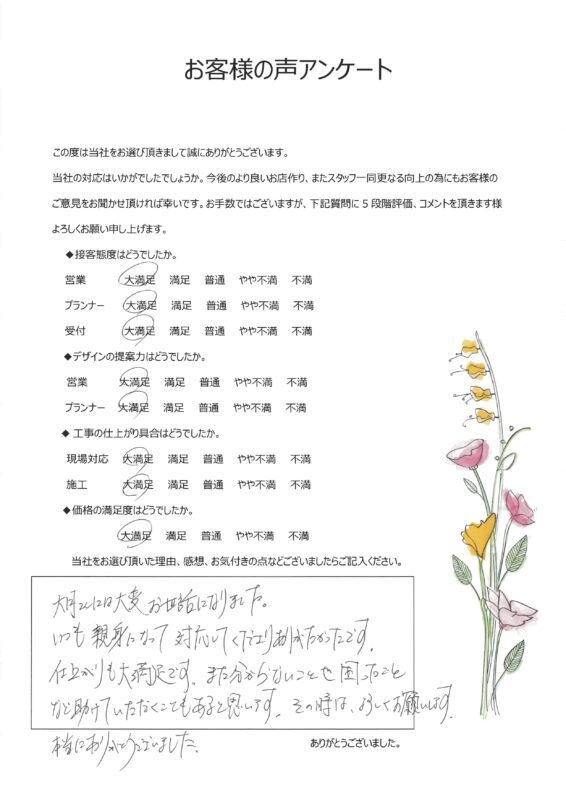 お客様の声アンケート
この度は当社をお選び頂きまして誠にありがとうございます。
当社の対応はいかがでしたでしょうか。今後のより良いお店作り、またスタッフ一同更なる向上の為にもお客様の
ご意見をお聞かせ頂ければ幸いです。お手数ではございますが、下記質問に５段階評価、コメントを頂きます様
よろしくお願い申し上げます。
◆接客態度はどうでしたか。
営業 大満足 満足 普通 やや不満 不満
プランナー 大満足 満足 普通 やや不満 不満
受付 大満足 満足 普通 やや不満 不満
◆デザインの提案力はどうでしたか。
営業 大満足 満足 普通 やや不満 不満
プランナー 大満足 満足 普通 やや不満 不満
◆ 工事の仕上がり具合はどうでしたか。
現場対応 大満足 満足 普通 やや不満 不満
施工 大満足 満足 普通 やや不満 不満
◆価格の満足度はどうでしたか。
大満足 満足 普通 やや不満 不満
当社をお選び頂いた理由、感想、お気付きの点などございましたらご記入ください。
には大変お世話になりました。
いつも親身になって対応してくださりありがたかったです。
仕上がりも大満足です。また分からないことや困ったこと
など助けていただくこともあると思います。その時は、よろしくお願いします。
本当にありがとうございました。
ありがとうございました。